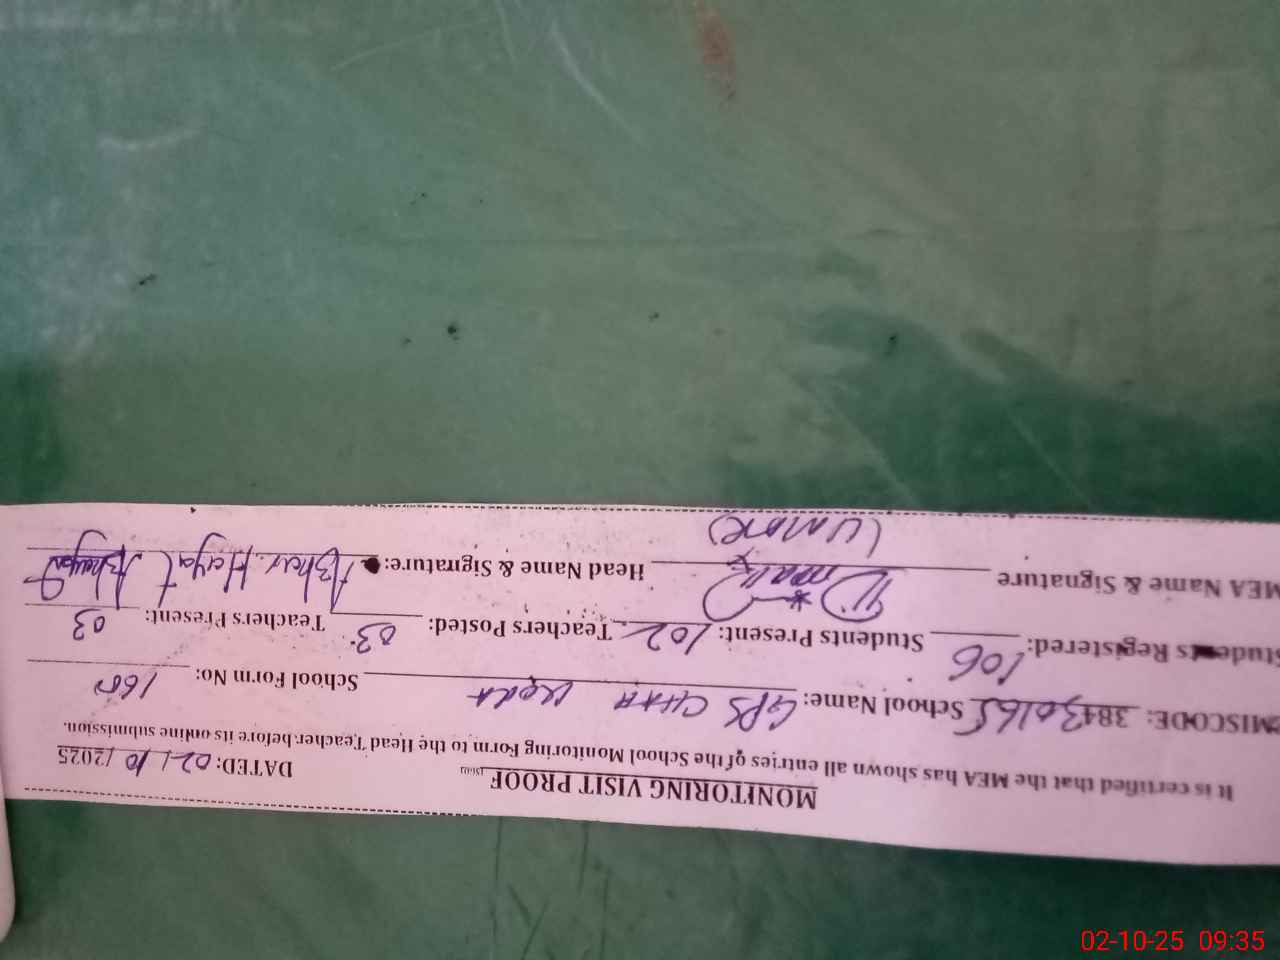 MONITORING VISIT PROOF
DATED: 02/10/2025
It is certified that the MEA has shown all entries of the School Monitoring Form to the Head Teacher before its online submission.
MISCODE: 38430165 School Name: GPS CHAH School Form No: 160
Students Registered: 106 Students Present: 102 Teachers Posted: 03 Teachers Present: 03
MEA Name & Signature Head Name & Signature: Azhar Hayat
(UMAR)
02-10-25 09:35